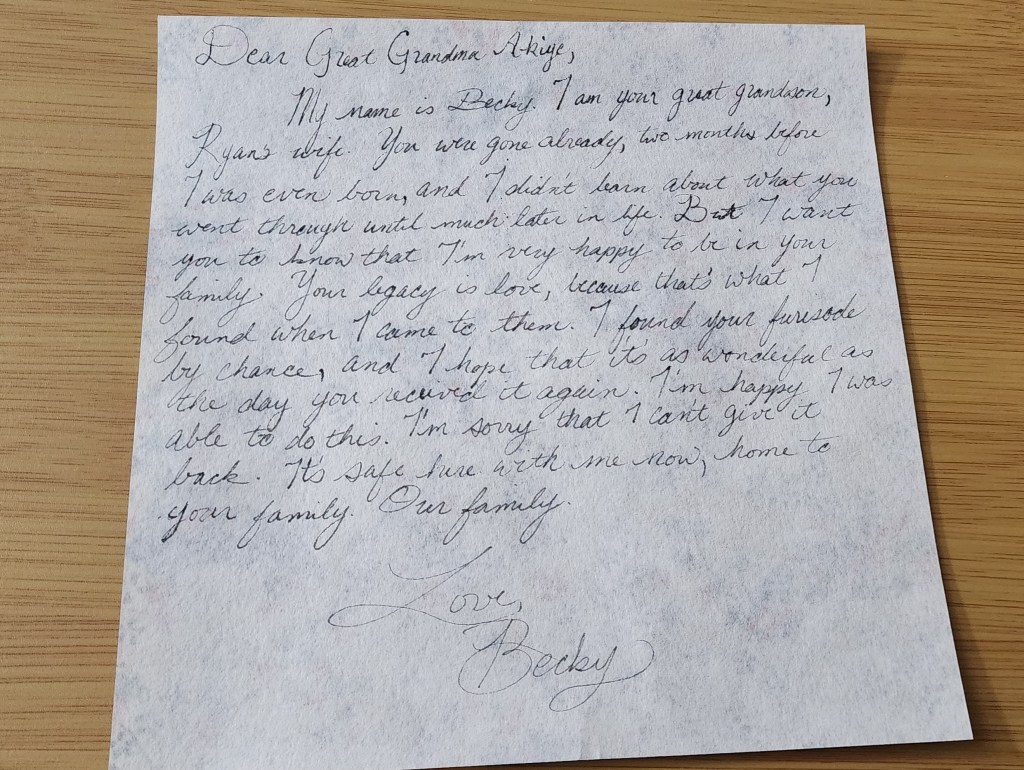 Dear Great Grandma Akiye,
My name is Becky. I am your great grandson,
Ryan's wife. You were gone already, two months before
I was even born, and I didn't learn about what you
went through until much later in life. But I want
you to know that I'm very happy to be in your
family. Your legacy is love, because that's what I
found when I came to them. I found your furisode
by chance, and I hope that it's as wonderful as
the day you received it again. I'm happy I was
able to do this. I'm sorry that I can't give it
back. It's safe here with me now, home to
your family. Our family.
Love,
Becky